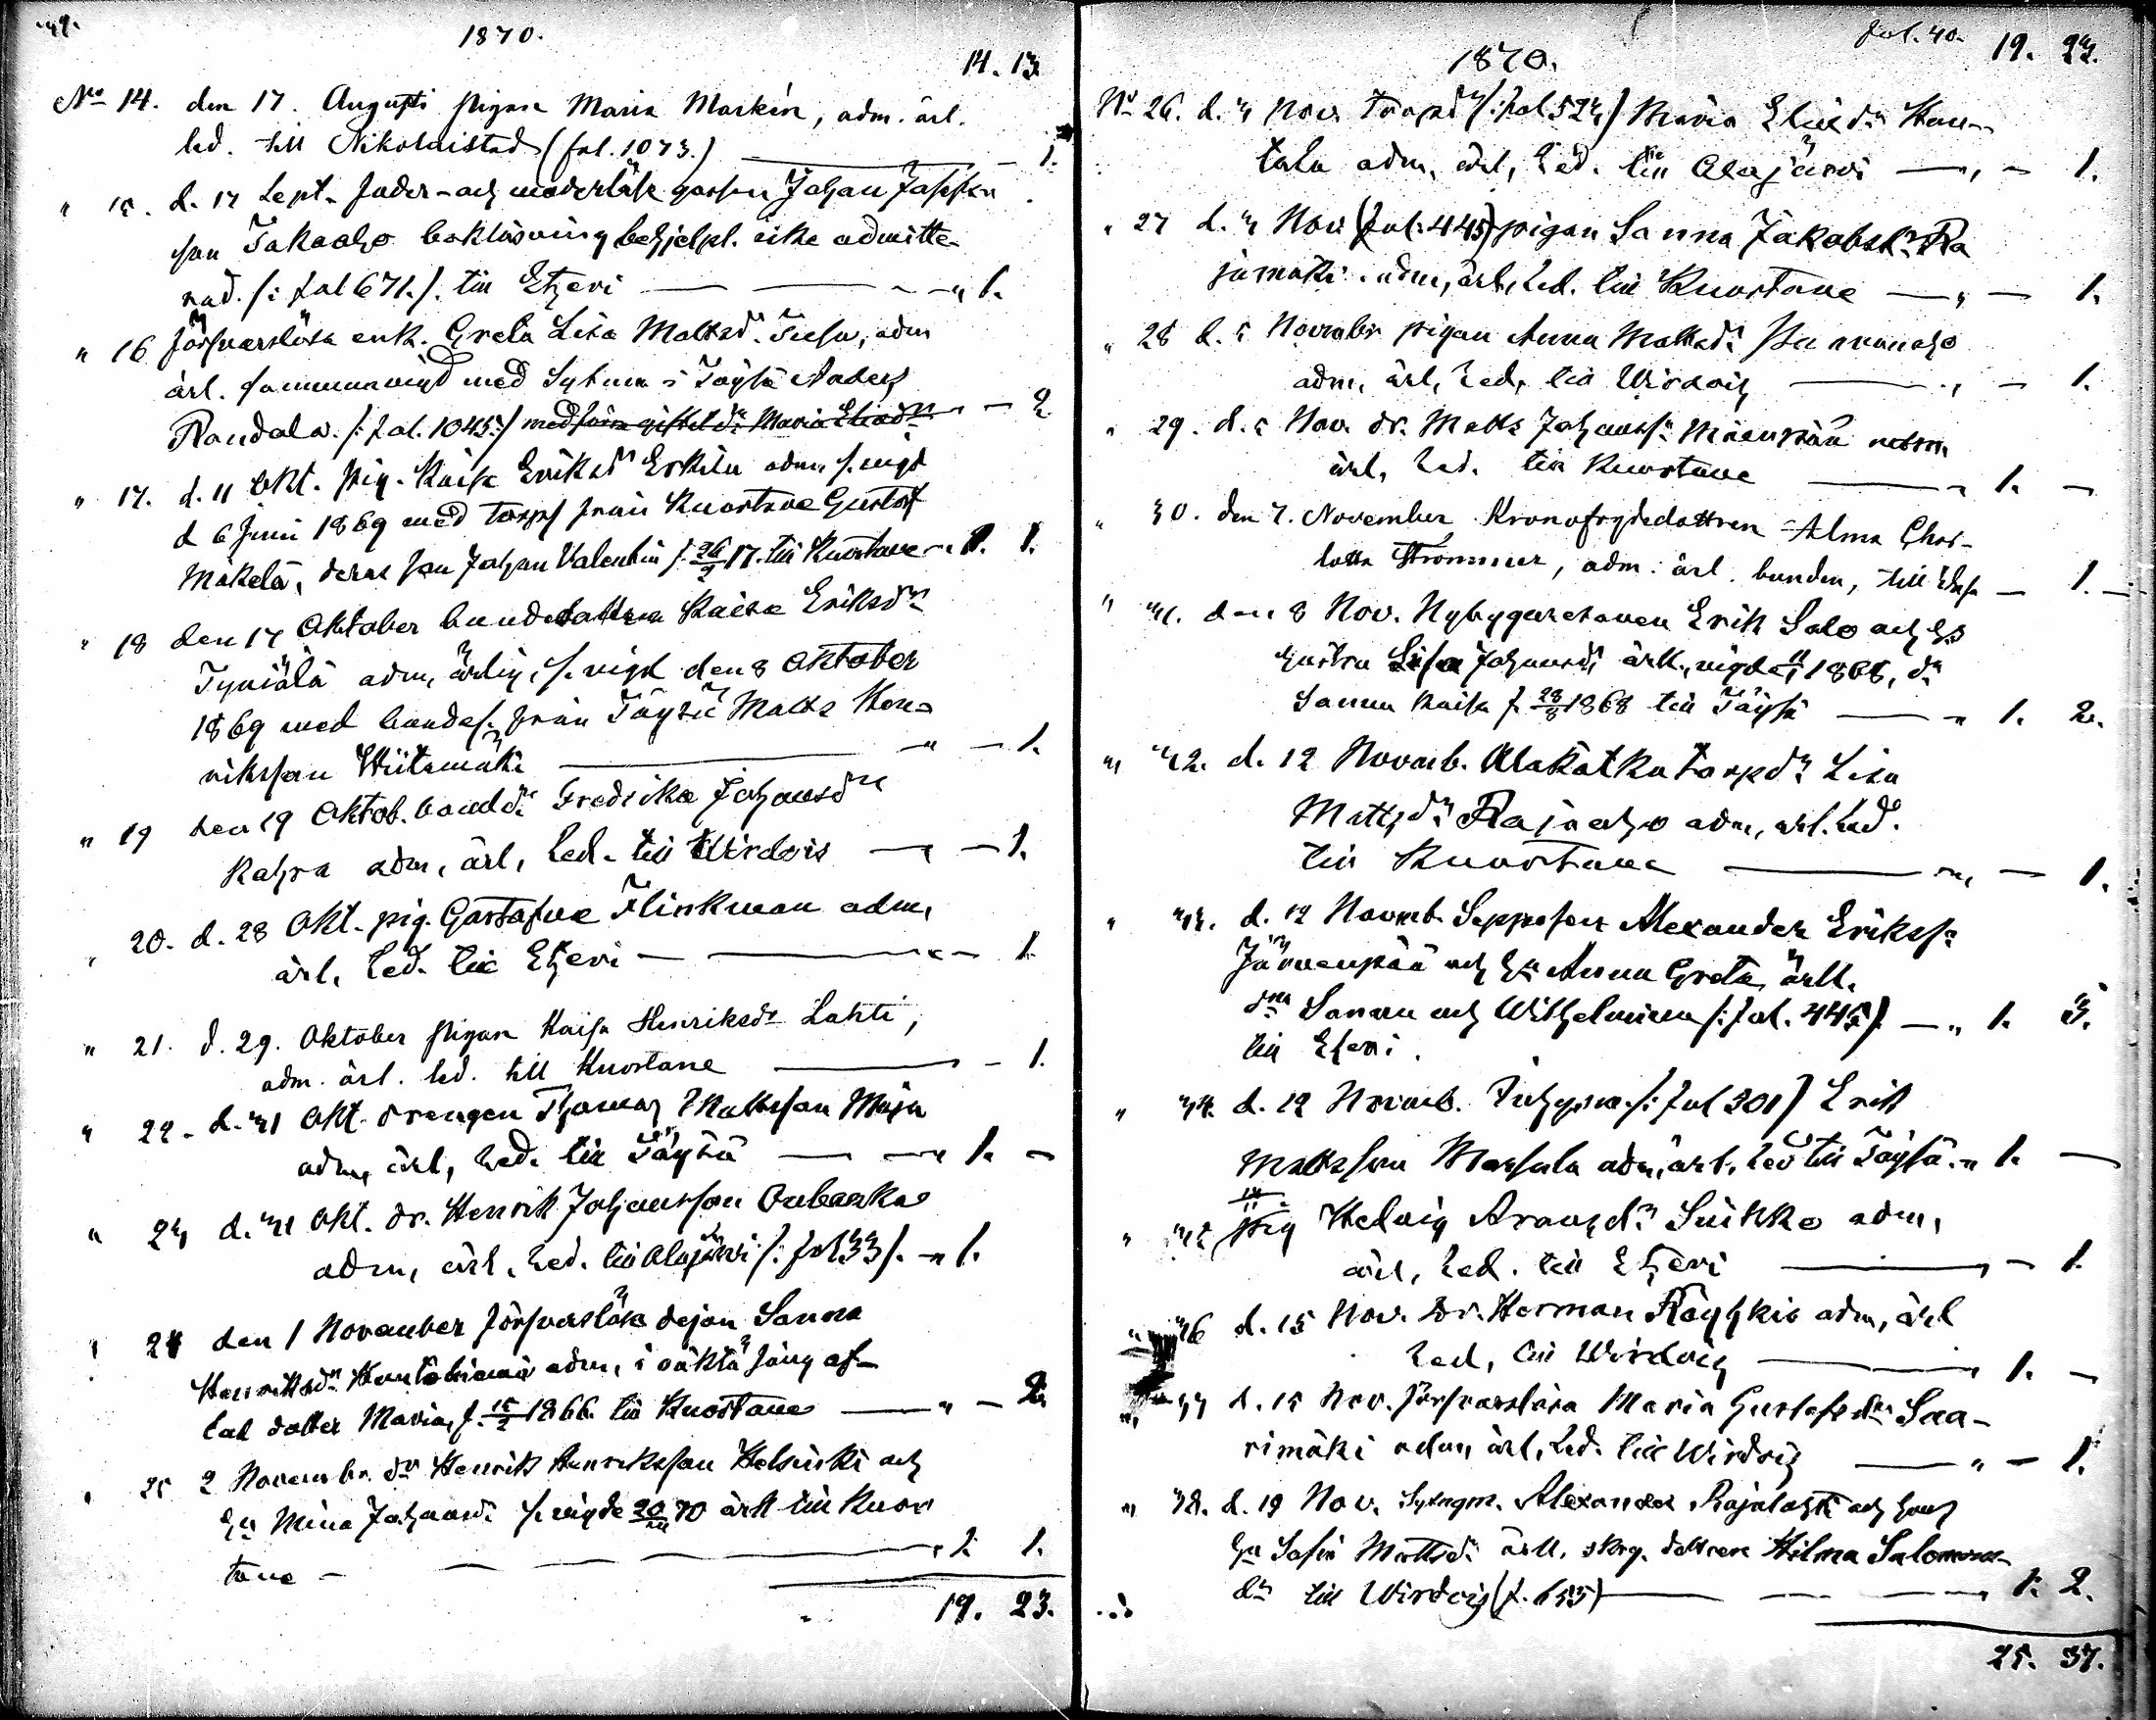 1870.
14. 13
No 14. den 17. Augusti pigan Maria Markén, adm. ärl.
led. till Nikolaistad (fol. 1073.) — 1.
" 15. d. 17 Sept. fader- och moderlöse gossen Johan
son Takaaho bekläsning behjelpl. icke admitte
rad. /: fol 671./. till Etseri — " 1.
" 16 försvarslösa enk. Greta Lisa Mattsd:r adm
ärl. sammanvigd med Sytman i Töysä Anders
Randala. /: fol. 1045:/ — 2
" 17. d. 11 Okt. pig. Kaisa Eriksd:r Erkilä adm. s. vigd
d 6 Juni 1869 med torp. från Kuortane Gustaf
Mäkelä, deras son Johan Valentin f. till Kuortane 1. 1.
" 18 den 17 Oktober bondedottren Kaisa Eriksd:r
Tyniälä adm, ärlig, s. vigd den 8 Oktober
1869 med bondes. från Töysä Matts Hen-
riksson Wiitamäki — " — 1.
" 19 den 19 Oktob. bondd:r Fredrika Johansd:r
Kahra adm, ärl, led. till Wirdois — " — 1.
" 20. d. 28 Okt. pig. Gustafva Flinkman adm,
ärl, led. till Etseri — " — 1.
" 21. d. 29. Oktober pigan Kaisa Henriksdr Lahti,
adm. ärl. led. till Kuortane — — 1.
" 22. d. 31 Okt. drengen Thomas Mattsson
adm, ärl, led. till Töysä — " 1. —
" 23 d. 31 Okt. dr. Henrik Johansson
adm, ärl. led. till Alajärvi /: fol 33 /. — " 1.
24 den 1 November försvarslösa dejan Sanna
Henriksd:r adm, i oäkta säng af-
lad dotter Maria, f. 15/2 1866. till Kuortane — " — 2.
" 25 2 Novembr. dr Henrik Henriksson Helsinki och
Mina Johansd:r s. vigde 70 ärl. till Kuor
tane — " 1. 1.
19. 23.
1870.
Fol. 40. 19. 23.
No 26. d. 3 Nov. torpd:r /: fol 523 /) Maria Eliasd:r Hau-
tala adm, ärl, led. till Alajärvi — " — 1.
" 27 d. 3 Nov (fol: 445) pigan Sanna Jakobsd:r Ra
jamäki adm, ärl, led. till Kuortane — " — 1.
" 28 d. 5 Novembr pigan Anna Mattsd:r
adm, ärl, led, till Wirdois — " — 1.
" 29. d. 5 Nov. dr. Matts Johanss:n Mäenpää adm,
ärl, led. till Kuortane — " 1. —
" 30. den 7. November Kronofogdedottren Alma Char-
lotta Frommer, adm. ärl. bunden, till — 1. —
" 31. den 8 Nov. Nybyggaresonen Erik Salo och hs
hustru Lisa Johansd:r ärl., vigde 1868, d:r
Sanna Kaisa f. 28/8 1868 till Töysä — " 1. 2.
" 32. d. 12 Novemb. Alakätka torpd:r Lisa
Mattsd:r Rajaaho adm, ärl. led.
till Kuortane — " — 1.
" 33. d. 12 Novmb. Sepposon Alexander Erikss:n
Järvenpää och h:u Anna Greta, ärl.
d:rar Sanna och Wilhelmina /: fol. 445 /. — " 1. 3.
till Etseri.
" 34. d. 12 Novmb. /: fol 301) Erik
Mattsson adm, ärl, led till Töysä. " 1. —
" 35 pig Helvig d:r Suikko adm,
ärl, led. till Etseri — " — 1.
" 36 d. 15 Nov. Dr. Herman adm, ärl
led, till Wirdois — " 1. —
" 37 d. 15 Nov. försvarslösa Maria Gustafsd:r Saa-
rimäki adm, ärl, led. till Wirdois — " — 1.
" 38. d. 19 Nov. Sytngm. Alexander Rajalahti och hans
h:u Sofia Mattsd:r ärl. dottren Hilma Salomons-
d:r till Wirdois (f. 655) — 1. 2.
25. 37.